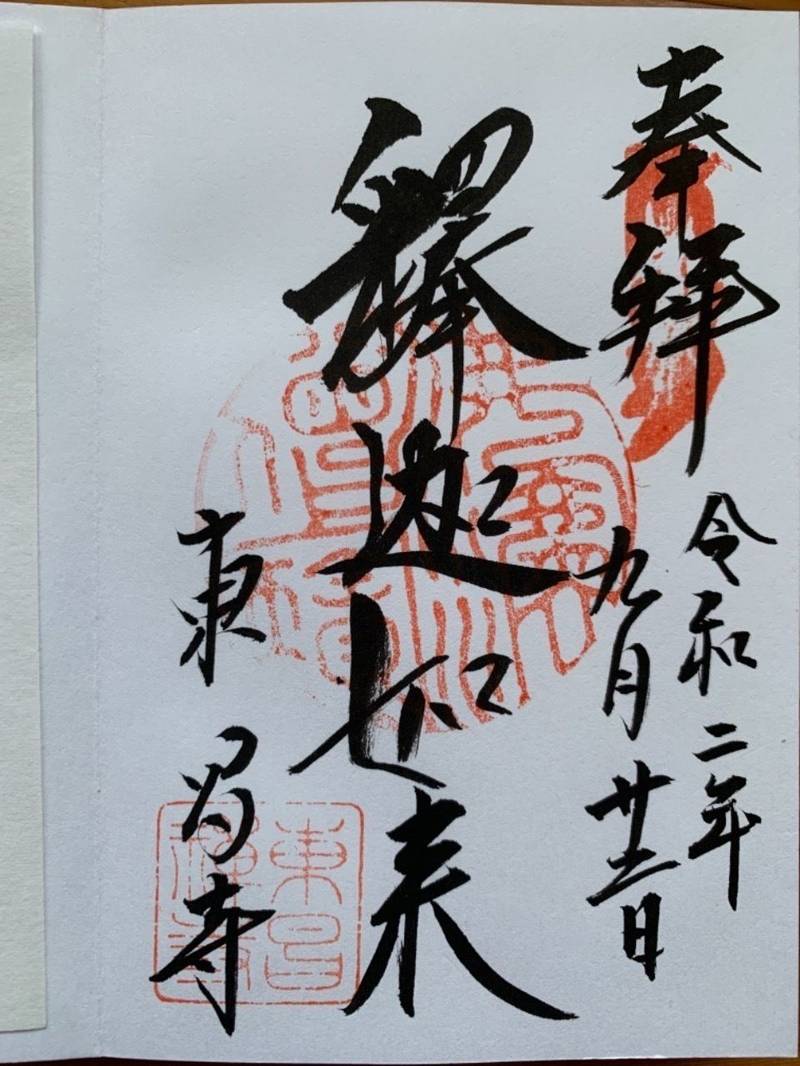 奉拝
令和二年
九月廿二日
釋迦如来
東昌寺
東昌
禅寺